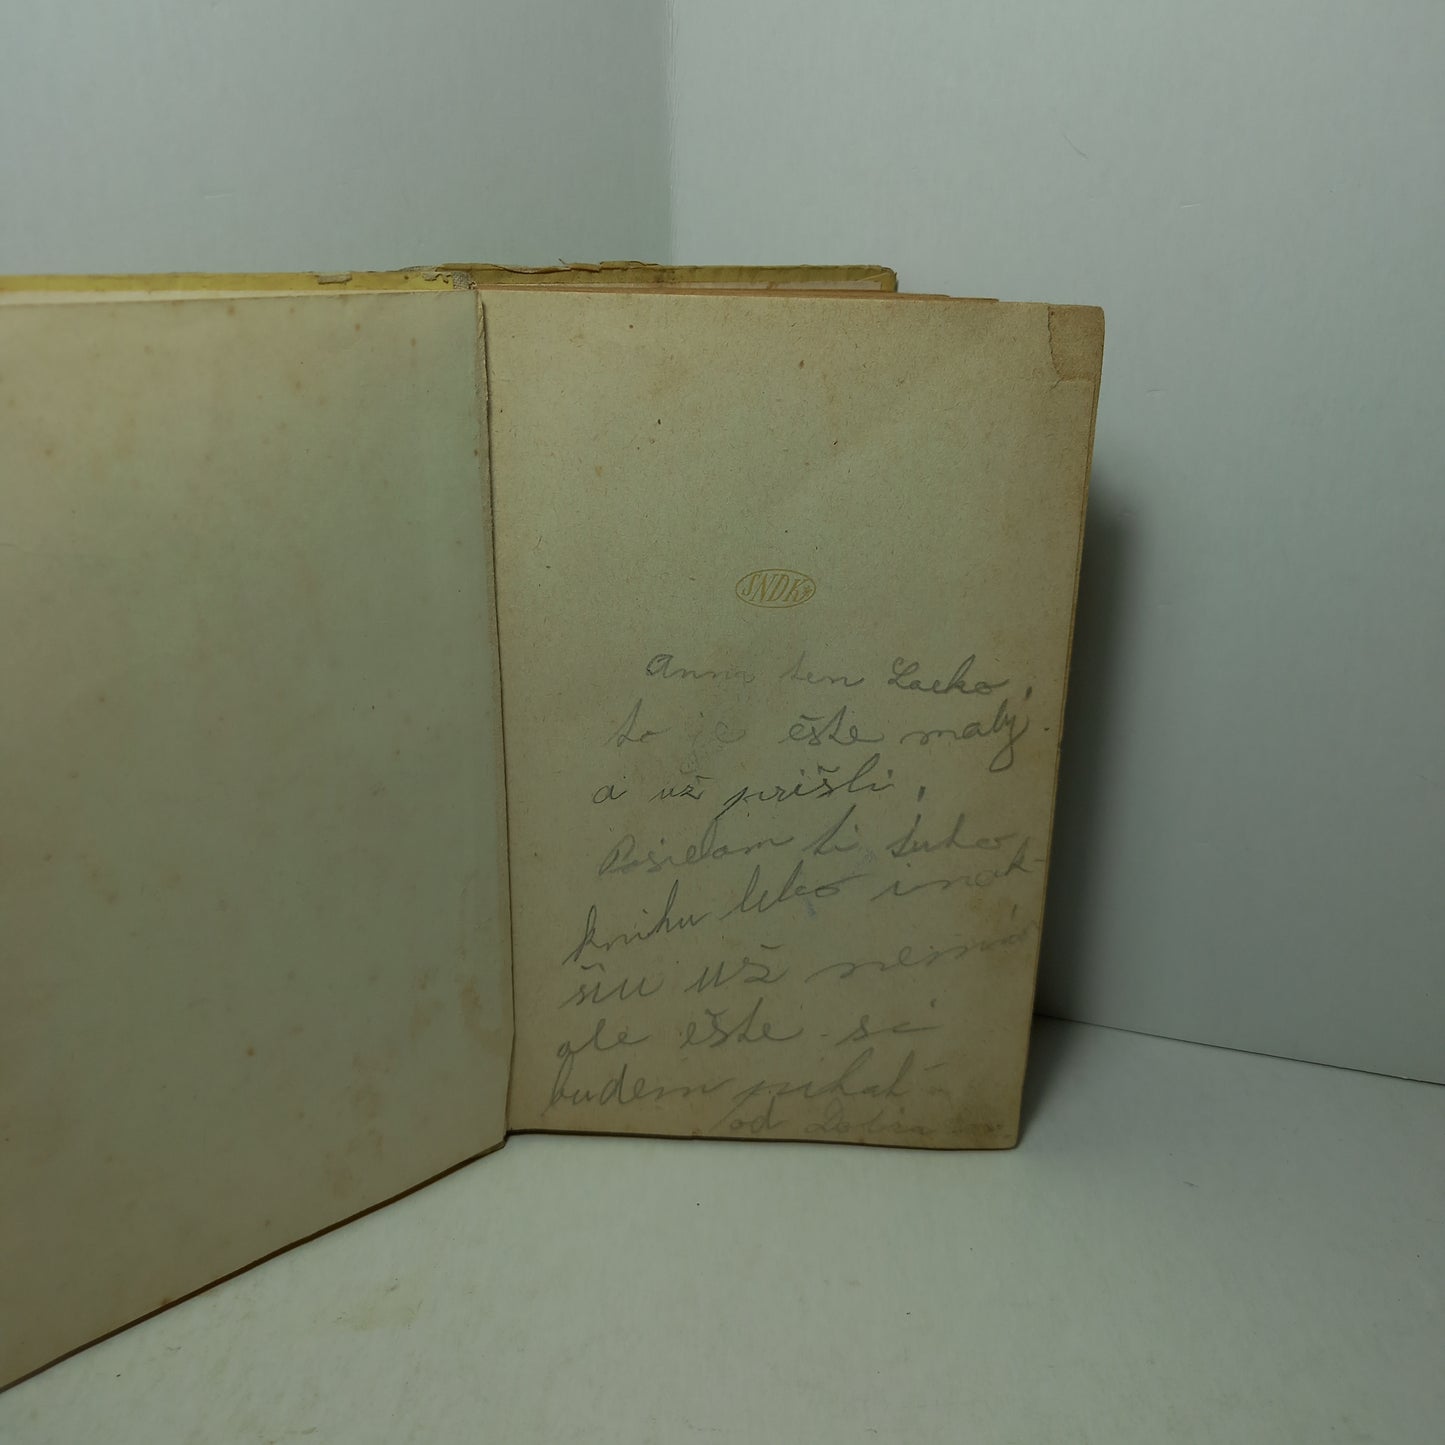 SNDK
Anna ten Lacko,
to je ešte malý.
a už prišli,
Posielam ti túto
knihu lebo inak-
šiu už nemám
ale ešte si
budem pítať
od